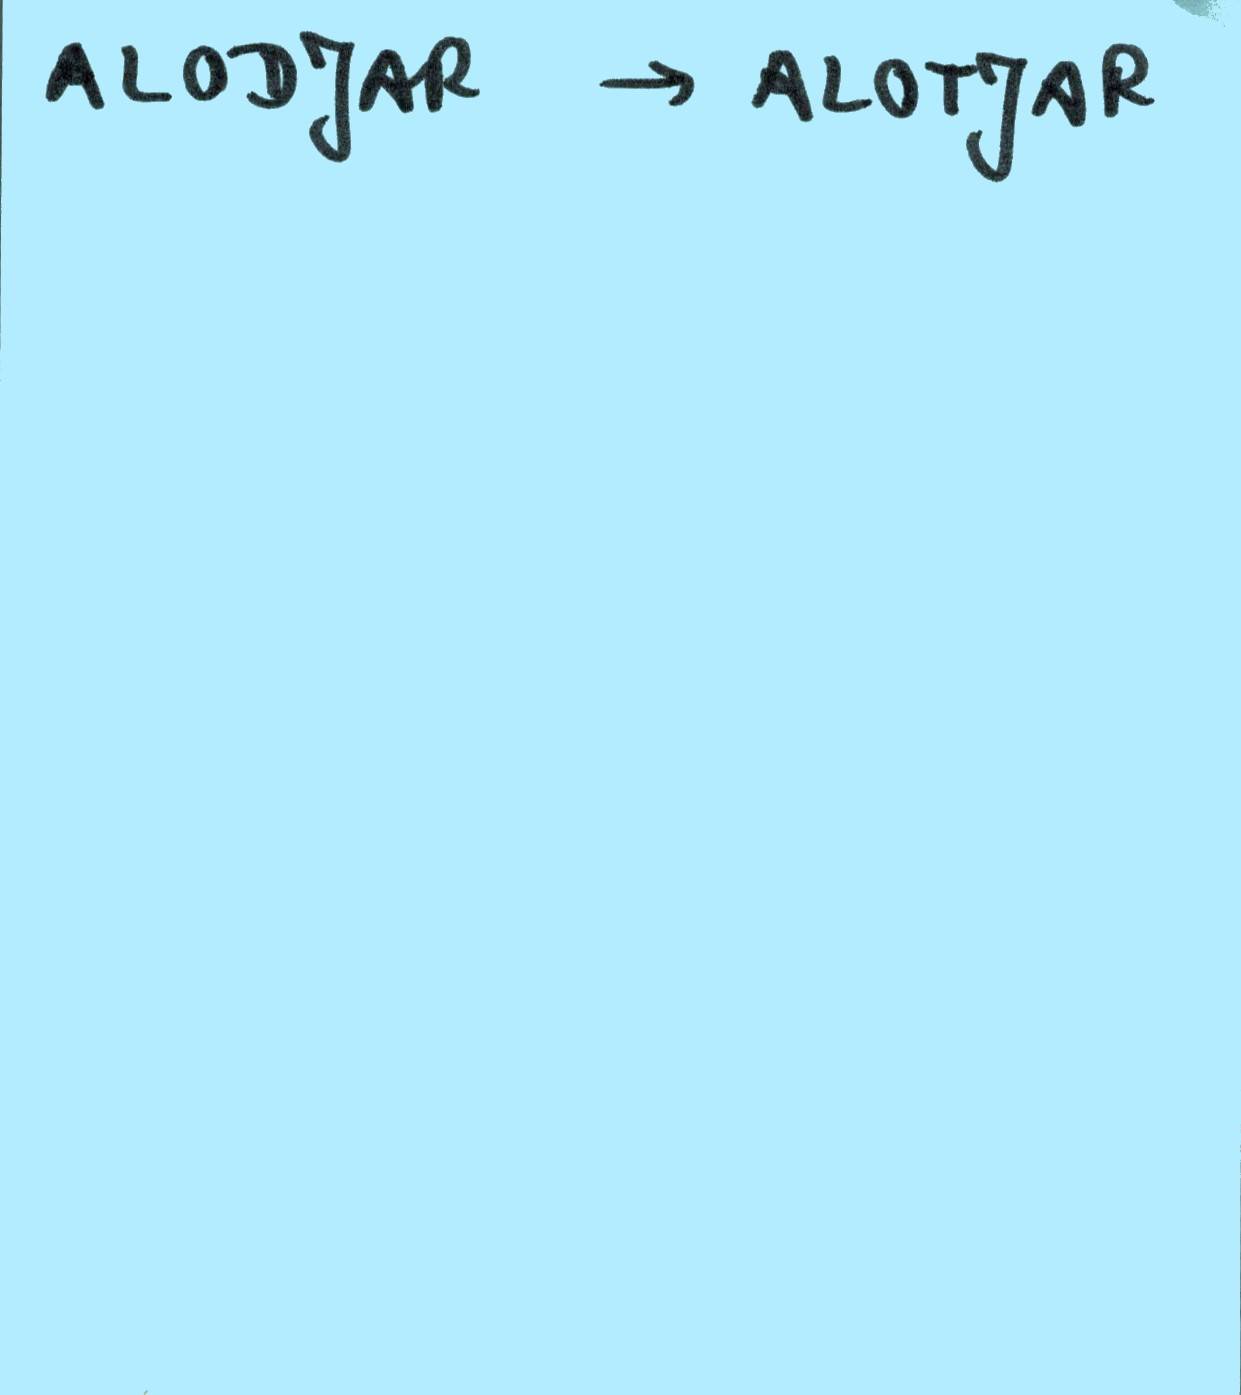 ALODJAR → ALOTJAR